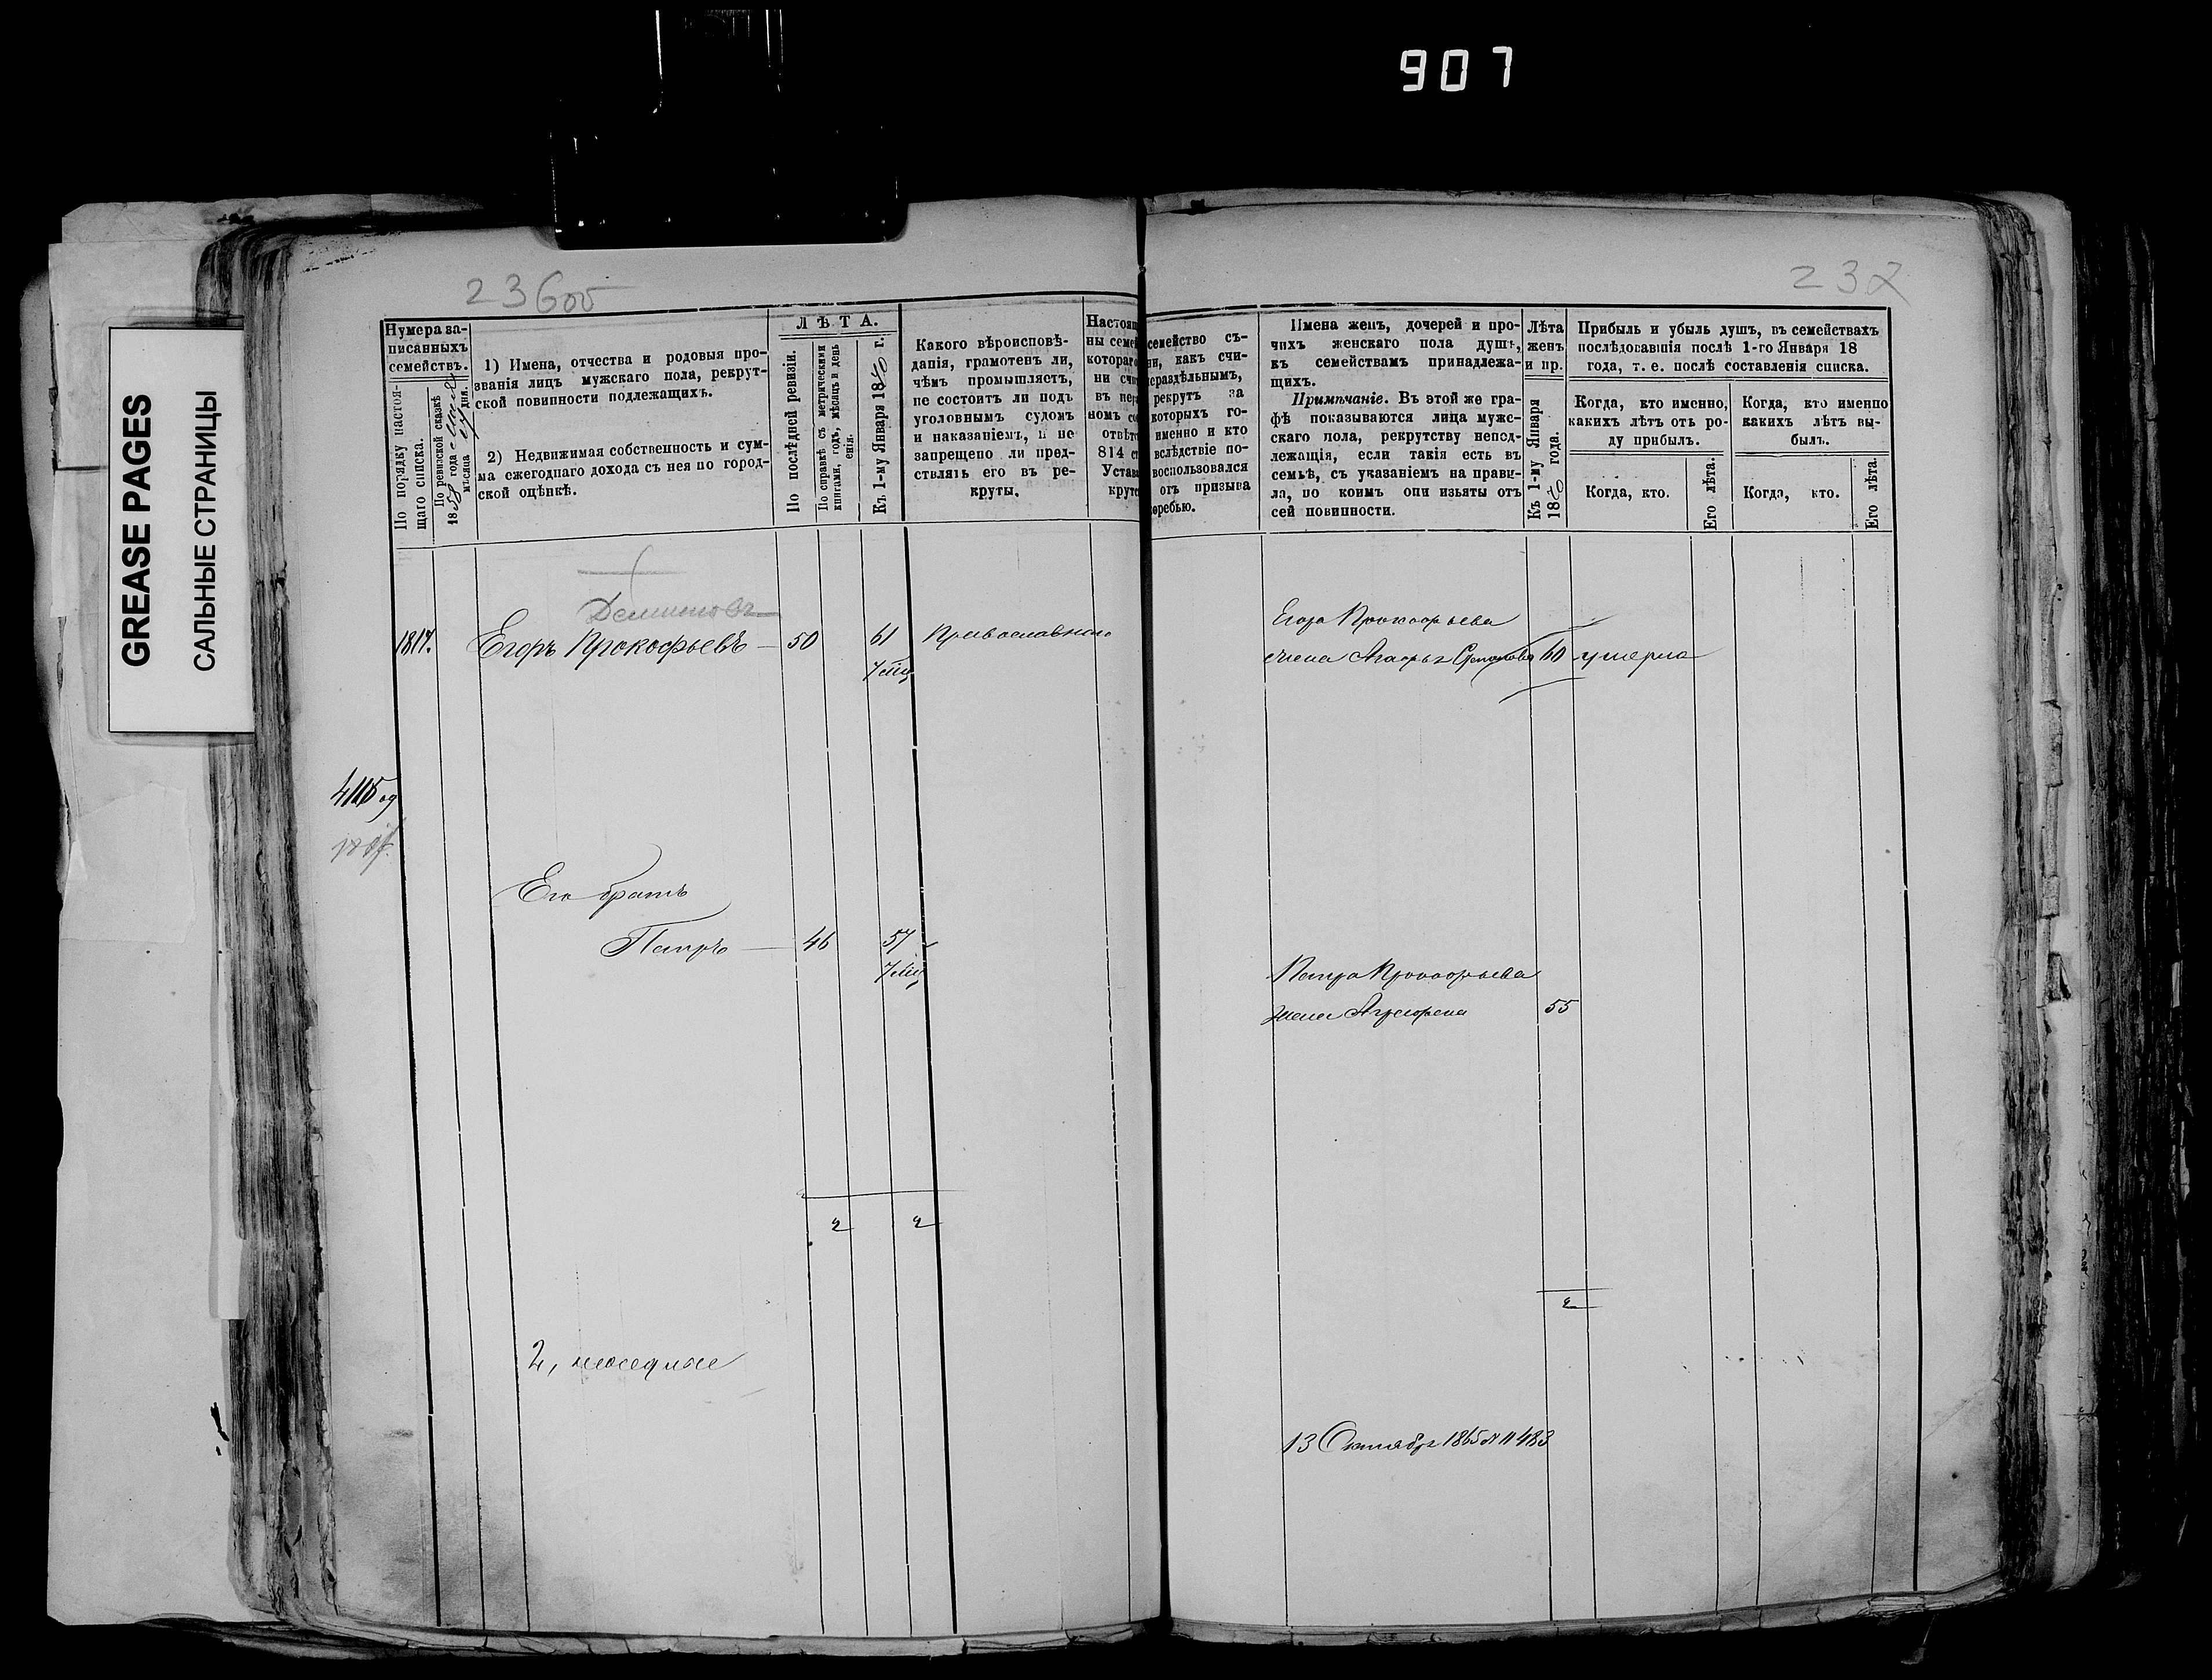 907
GREASE PAGES
САЛЬНЫЕ СТРАНИЦЫ
23 боб
Нумера за-
писанныхъ
семействъ.
По порядку настоя-
щаго списка.
По ревизской сказкѣ
1858 года
мѣсяца дня.
1) Имена, отчества и родовыя про-
званія лицъ мужскаго пола, рекрут-
ской повинности подлежащихъ.
2) Недвижимая собственность и сум-
ма ежегоднаго дохода съ нея по город-
ской оцѣнкѣ.
ЛѢТА.
По послѣдней ревизіи.
По справкѣ съ метрическими
книгами, годъ, мѣсяцъ и день
Къ 1-му Января 18 г.
Какого вѣроисповѣ-
данія, грамотенъ ли,
чѣмъ промышляетъ,
не состоитъ ли подъ
уголовнымъ судомъ
и наказаніемъ, и не
запрещено ли пред-
ствлять его въ ре-
круты.
Демино
1817. Егоръ Прокофьевъ 50 61 Православнаго
4115
Его братъ
Петръ 46 57
2 2
2,
232
семейство съ-
ни, какъ счи-
рекрутъ за
которыхъ го-
именно и кто
вслѣдствіе по-
воспользовался
отъ призыва
Имена женъ, дочерей и про-
чихъ женскаго пола душъ,
къ семействамъ принадлежа-
щихъ.
Примѣчаніе. Въ этой же гра-
фѣ показываются лица муж-
скаго пола, рекрутству непод-
лежащія, если такія есть въ
семьѣ, съ указаніемъ на прави-
ла, по коимъ они изъяты отъ
сей повинности.
Лѣта
женъ
и пр.
Къ 1-му Января
18 года.
Прибыль и убыль душъ, въ семействахъ
послѣдовавшія послѣ 1-го Января 18
года, т. е. послѣ составленія списка.
Когда, кто именно,
какихъ лѣтъ отъ ро-
ду прибылъ.
Когда, кто.
Его лѣта.
Когда, кто именно
какихъ лѣтъ вы-
былъ.
Когда, кто.
Его лѣта.
Егора Прокофьева
жена Агафья 60 умерла
Петра Прокофьева
жена Агрефена 55
2
13 Октября 1865 № 11483